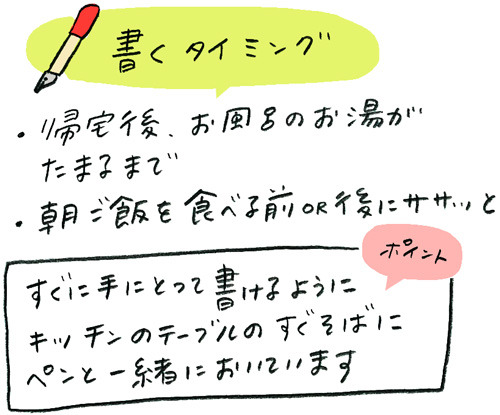 書くタイミング
・帰宅後、お風呂のお湯が
たまるまで
・朝ご飯を食べる前OR後にササッと
ポイント
すぐに手にとって書けるように
キッチンのテーブルのすぐそばに
ペンと一緒においています